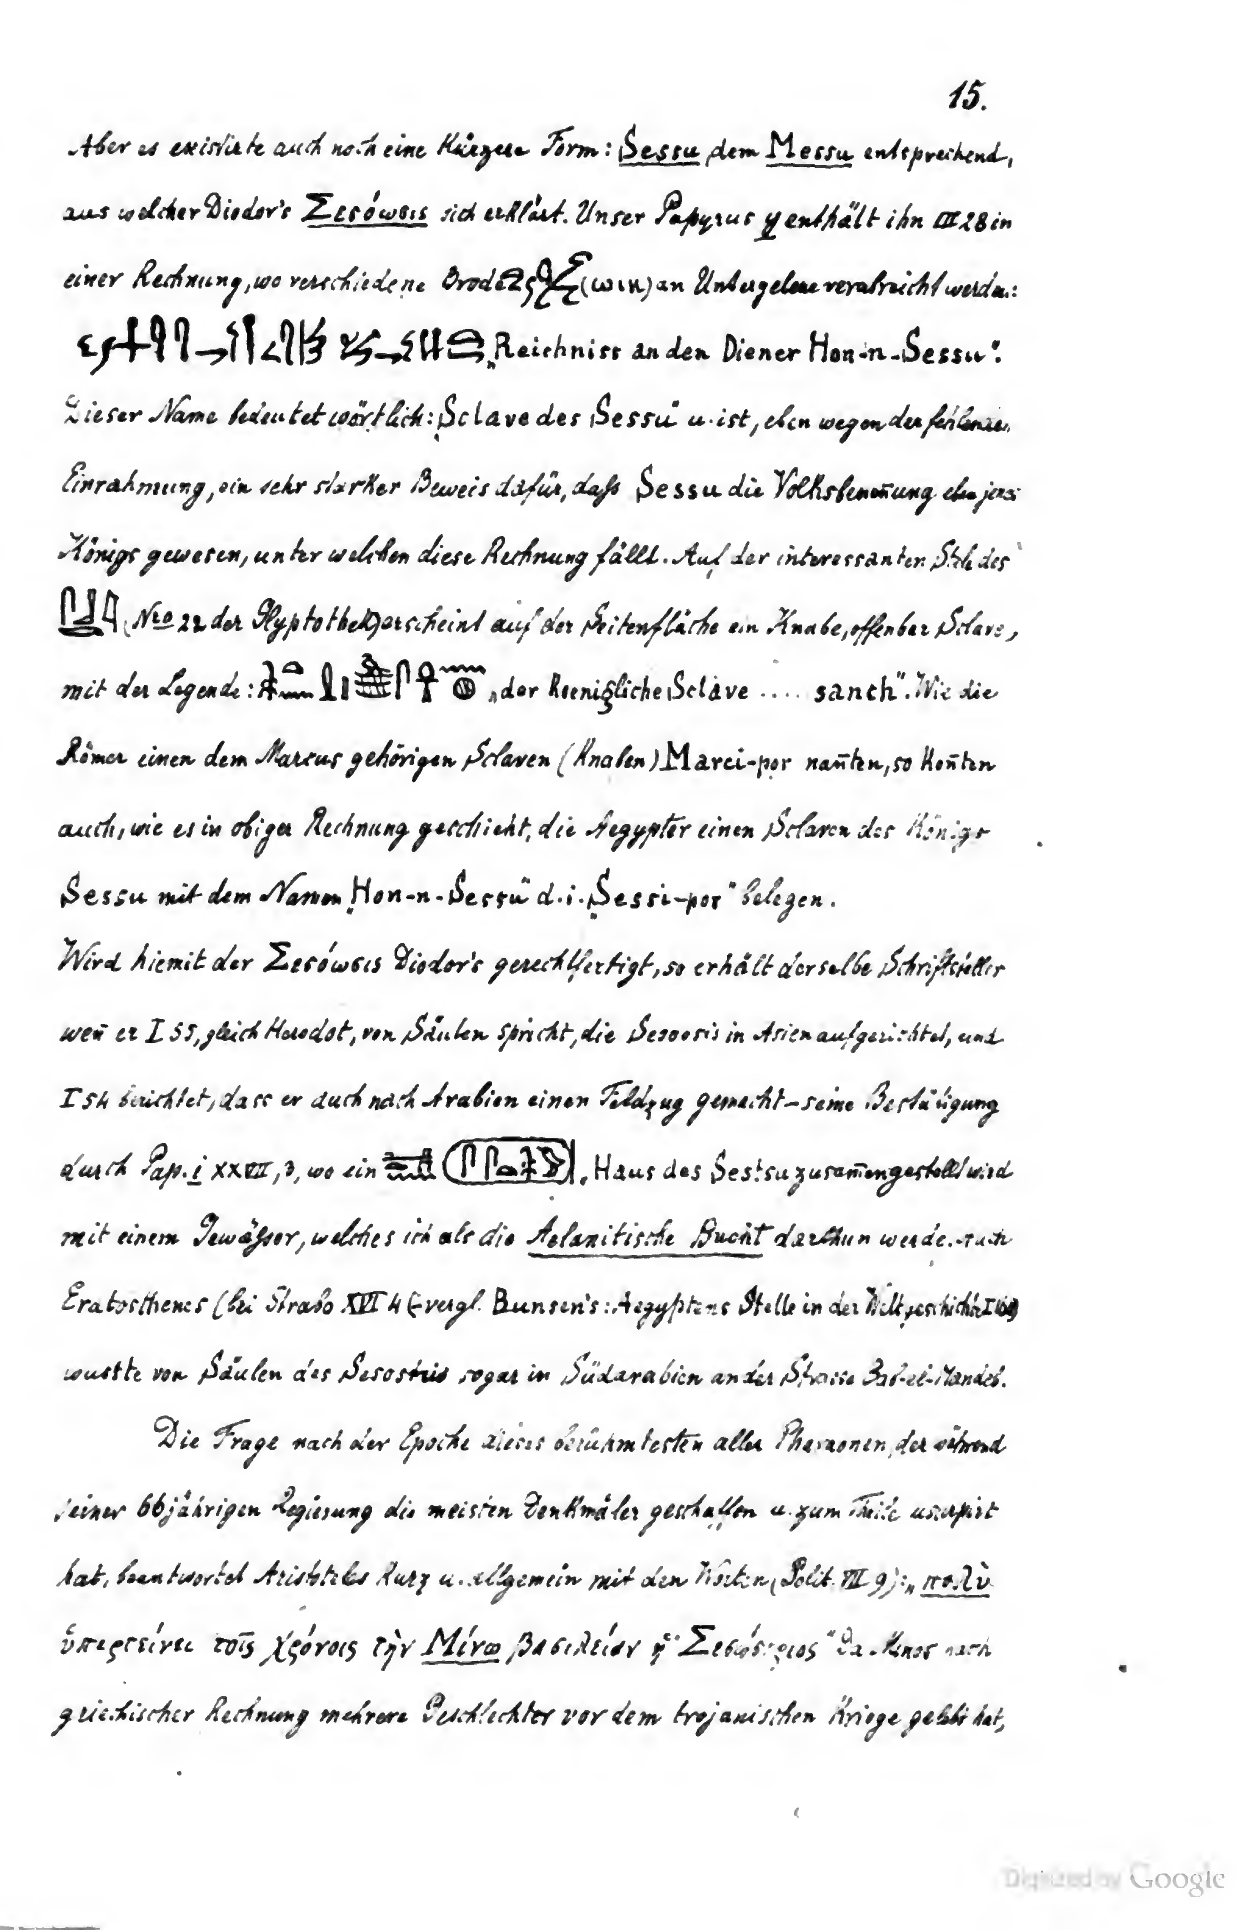 15.
Aber es existirte auch noch eine Kürzere Form: Sessu, dem Messu entsprechend,
aus welcher Diodor's Σεσόωσις sich erklärt. Unser Papyrus y enthält ihn III 28 in
einer Rechnung, wo verschiedene Brode (ωικ) an Untergebene verabreicht werden:
„Reichniss an den Diener Hon-n-Sessu".
Dieser Name bedeutet wörtlich: „Sclave des Sessu" u. ist, eben wegen der fehlenden
Einrahmung, ein sehr starker Beweis dafür, daß Sessu die Volksbenen̄ung eben jenes
Königs gewesen, unter welchen diese Rechnung fällt. Auf der interessanten Stele des
(Nro 22 der Glyptothek) erscheint auf der Seitenfläche ein Knabe, offenbar Sclave,
mit der Legende: „der Koenigliche Sclave .... sanch". Wie die
Römer einen dem Marcus gehörigen Sclaven (Knaben) Marci-por nan̄ten, so kon̄ten
auch, wie es in obiger Rechnung geschieht, die Aegypter einen Sclaven des Königs
Sessu mit dem Namen „Hon-n-Sessu" d.i. „Sessi-por" belegen.
Wird hiemit der Σεσόωσις Diodor's gerechtfertigt, so erhält derselbe Schriftsteller
wen̄ er I 55, gleich Herodot, von Säulen spricht, die Sesoosis in Asien aufgerichtet, und
I 54 berichtet, dass er auch nach Arabien einen Feldzug gemacht – seine Bestätigung
durch Pap. i XXVII, 3, wo ein „Haus des Sestsu zusam̄engestellt wird
mit einem Gewässer, welches ich als die Aelanitische Bucht darthun werde. Auch
Eratosthenes (bei Strabo XVI 4 vergl. Bunsen's: Aegyptens Stelle in der Weltgeschichte I
wusste von Säulen des Sesostris sogar in Südarabien an der Strasse Bab-el-Mandeb.
Die Frage nach der Epoche dieses berühmtesten aller Pharaonen, der während
seiner 66jährigen Regierung die meisten Denkmäler geschaffen u. zum Theile usurpirt
hat, beantwortet Aristoteles kurz u. allgemein mit den Worten (Polit. VII 9): „πολὺ
ὑπερτείνει τοῖς χρόνοις τὴν Μίνω βασιλείαν ἡ Σεσώστριος" Da Minos nach
griechischer Rechnung mehrere Geschlechter vor dem trojanischen Kriege gelebt hat,
Digitized by Google